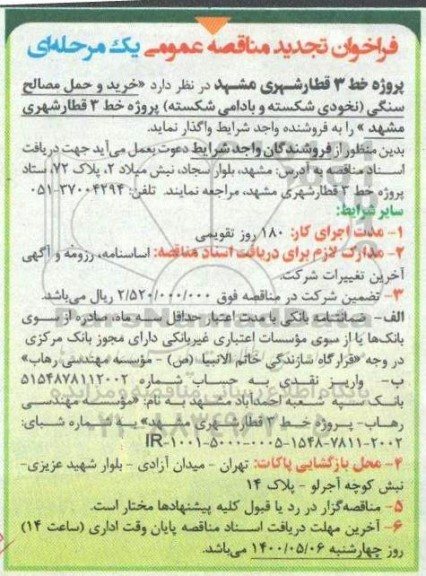 فراخوان تجدید مناقصه عمومی یک مرحله‌ای
پروژه خط ۳ قطارشهری مشهد در نظر دارد «خرید و حمل مصالح
سنگی (نخودی شکسته و بادامی شکسته) پروژه خط ۳ قطارشهری
مشهد » را به فروشنده واجد شرایط واگذار نماید.
بدین منظور از فروشندگان واجد شرایط دعوت بعمل می‌آید جهت دریافت
اسناد مناقصه به آدرس: مشهد، بلوار سجاد، نبش میلاد ۲، پلاک ۷۲، ستاد
پروژه خط ۳ قطارشهری مشهد، مراجعه نمایند. تلفن: ۳۷۰۰۴۲۹۴-۰۵۱
سایر شرایط:
۱- مدت اجرای کار: ۱۸۰ روز تقویمی
۲- مدارک لازم برای دریافت اسناد مناقصه: اساسنامه، رزومه و آگهی
آخرین تغییرات شرکت.
۳- تضمین شرکت در مناقصه فوق ۲/۵۲۰/۰۰۰/۰۰۰ ریال می‌باشد.
الف- ضمانتنامه بانکی با مدت اعتبار حداقل سه ماه، صادره از سوی
بانک‌ها یا از سوی مؤسسات اعتباری غیربانکی دارای مجوز بانک مرکزی
در وجه «قرارگاه سازندگی خاتم الانبیا (ص) - مؤسسه مهندسی رهاب»
ب- واریز نقدی به حساب شماره ۵۱۵۴۸۷۸۱۱۲۰۰۲
بانک سپه شعبه احمدآباد مشهد به نام: «مؤسسه مهندسی
رهاب- پروژه خط ۳ قطارشهری مشهد» به شماره شبای:
IR-۱۰۰۱-۵۰۰۰-۰۰۰۵-۱۵۴۸-۷۸۱۱-۲۰۰۲
۴- محل بازگشایی پاکات: تهران - میدان آزادی - بلوار شهید عزیزی-
نبش کوچه آجرلو - پلاک ۱۴
۵- مناقصه‌گزار در رد یا قبول کلیه پیشنهادها مختار است.
۶- آخرین مهلت دریافت اسناد مناقصه پایان وقت اداری (ساعت ۱۴)
روز چهارشنبه ۱۴۰۰/۰۵/۰۶ می‌باشد.